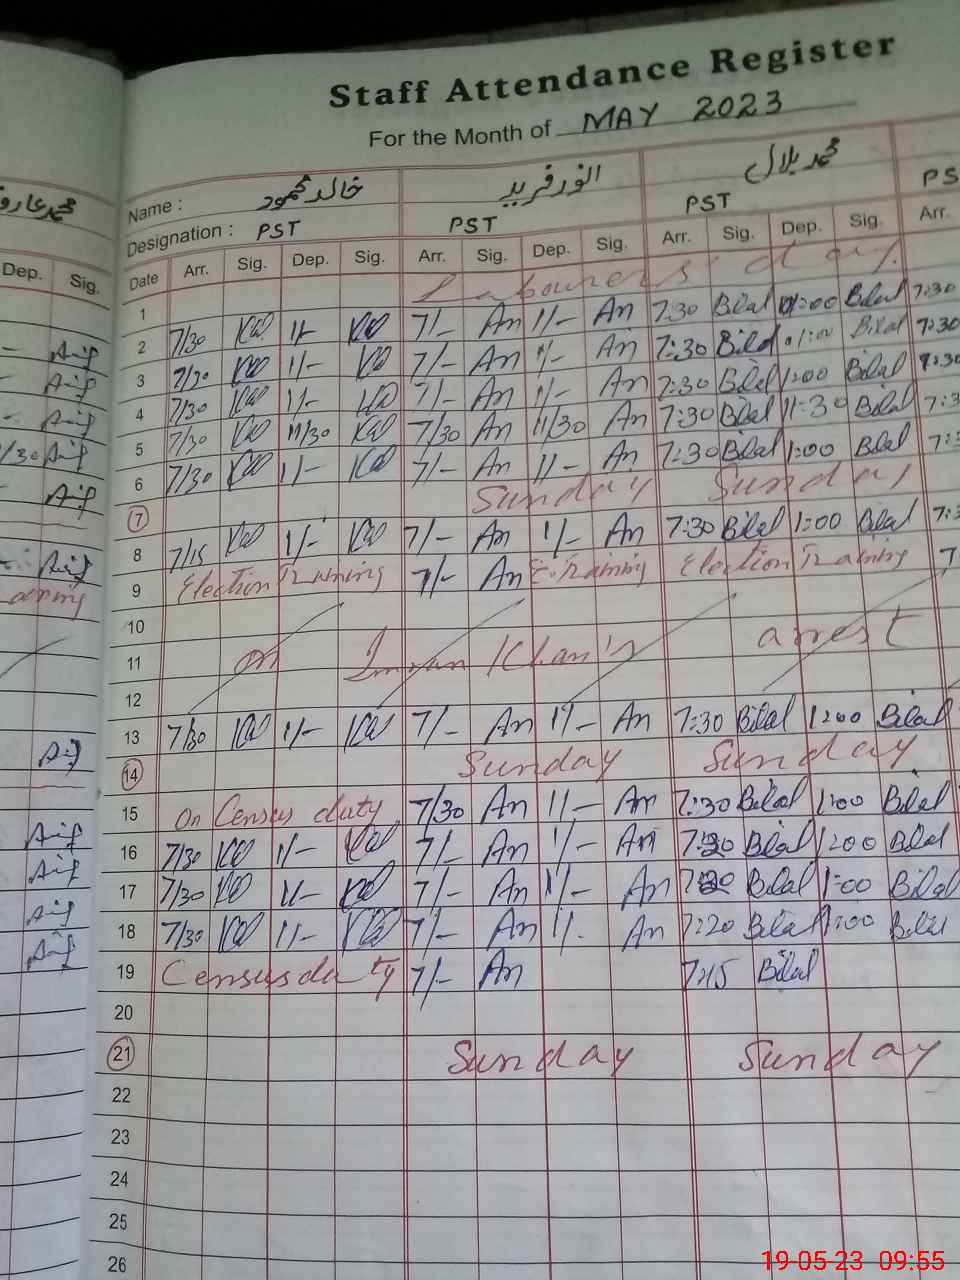 Staff Attendance Register
For the Month of MAY 2023
Name : خالد محمود انور فرید محمد بلال
Designation : PST PST PST PS
Dep. Sig. Date Arr. Sig. Dep. Sig. Arr. Sig. Dep. Sig. Arr. Sig. Dep. Sig. Arr.
1 Labourers day.
2 7/30 1/- 7/- An 1/- An 7:30 Bilal 01:00 Bilal 7:30
3 7/30 1/- 7/- An 1/- An 7:30 Bilal 01:00 Bilal 7:30
4 7/30 1/- 7/- An 1/- An 7:30 Bilal 1:00 Bilal 7:30
5 7/30 11/30 7/30 An 11/30 An 7:30 Bilal 11:30 Bilal
6 7/30 1/- 7/- An 1/- An 7:30 Bilal 1:00 Bilal
7 Sunday Sunday
8 7/15 1/- 7/- An 1/- An 7:30 Bilal 1:00 Bilal
9 Election Training 7/- An E.Training Election Training
10
11 on Imran Khan's arrest
12
13 7/30 1/- 7/- An 1/- An 7:30 Bilal 1:00 Bilal
14 Sunday Sunday
15 On Census duty 7/30 An 1/- An 7:30 Bilal 1:00 Bilal
16 7/30 1/- 7/- An 1/- An Bilal 1:00 Bilal
17 7/30 1/- 7/- An 1/- An Bilal 1:00 Bilal
18 7/30 1/- 7/- An 1/. An 7:20 Bilal 1:00 Bilal
19 Census duty 7/- An 7:15 Bilal
20
21 Sunday Sunday
22
23
24
25
26
19-05-23 09:55